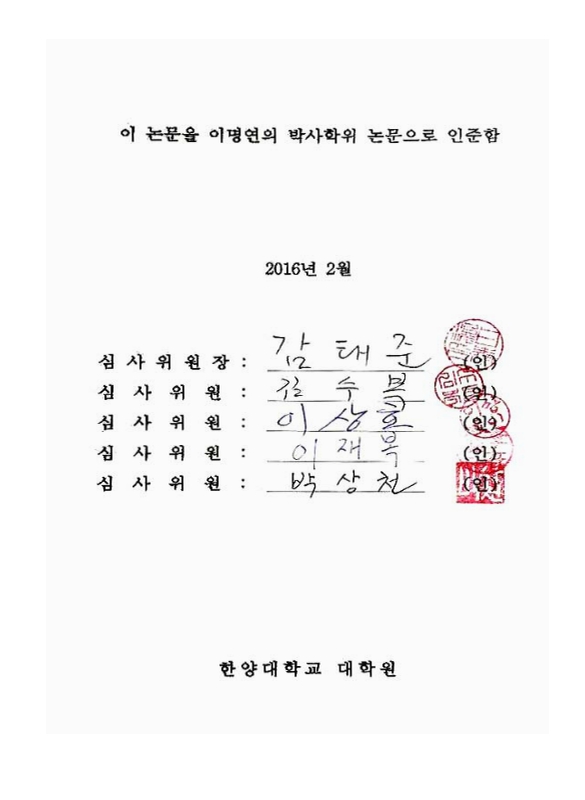 이 논문을 이명연의 박사학위 논문으로 인준함
2016년 2월
심 사 위 원 장 : 감 태 준 (인)
심 사 위 원 : 김 수 복 (인)
심 사 위 원 : 이 상 호 (인)
심 사 위 원 : 이 재 복 (인)
심 사 위 원 : 박 상 천 (인)
한양대학교 대학원